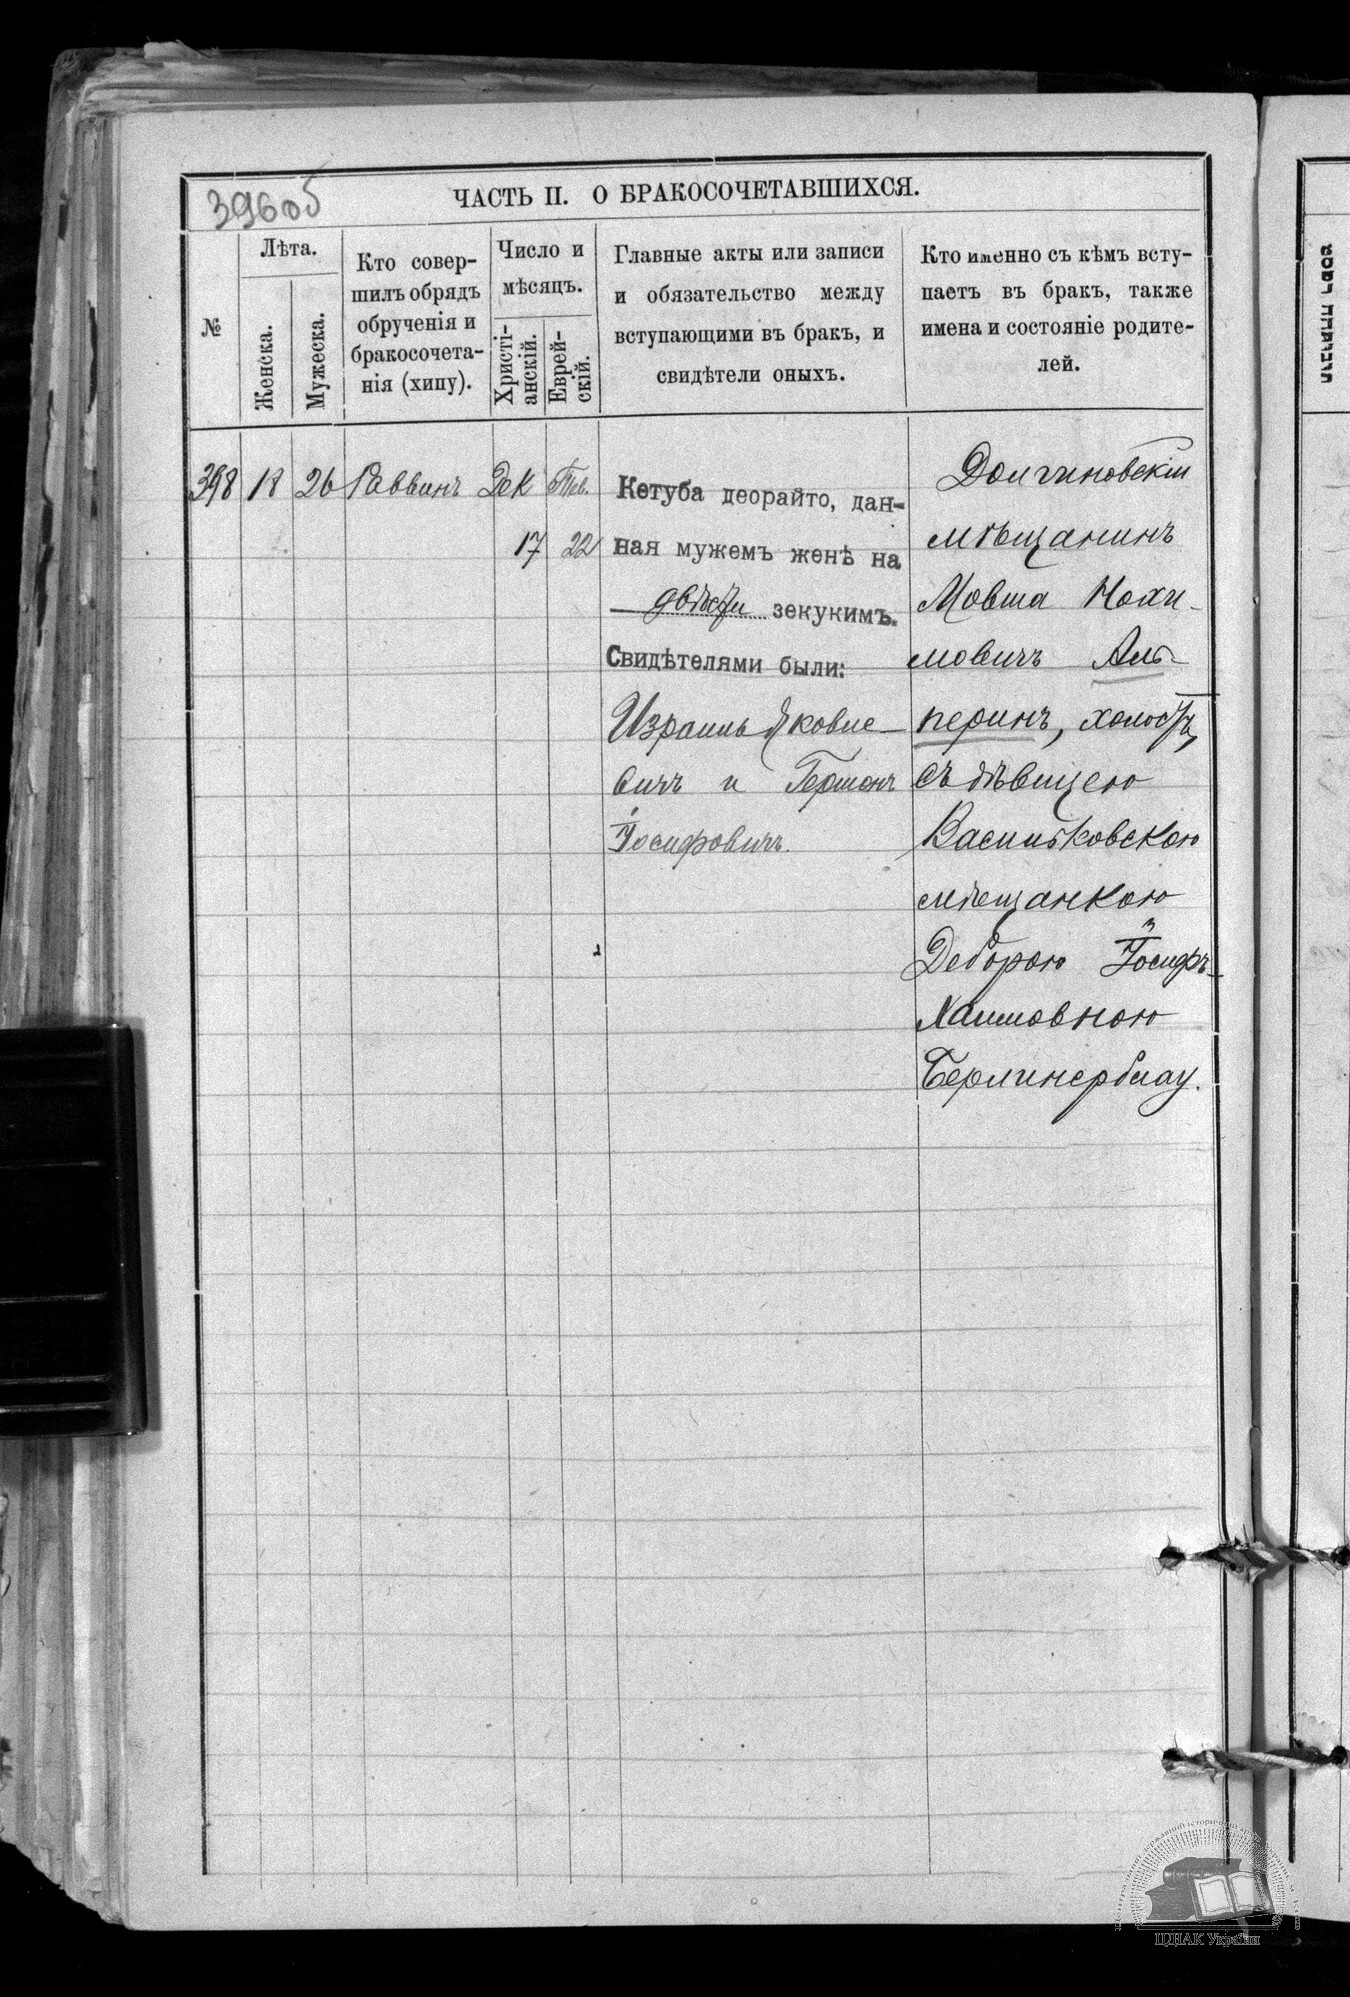 396об
ЧАСТЬ II. О БРАКОСОЧЕТАВШИХСЯ.
№
Лѣта.
Женска.
Мужеска.
Кто совер-
шилъ обрядъ
обрученія и
бракосочета-
нія (хипу).
Число и
мѣсяцъ.
Христі-
анскій.
Еврей-
скій.
Главные акты или записи
и обязательство между
вступающими въ брак, и
свидѣтели оныхъ.
Кто именно съ кѣмъ всту-
паетъ въ бракъ, также
имена и состояніе родите-
лей.
398 18 26 Раввинъ Дек Тев.
17 22
Кетуба деорайто, дан-
ная мужемъ женѣ на
двѣсти зекукимъ.
Свидѣтелями были:
Израиль Яковле-
вичъ и Гершонъ
Іосифовичъ.
Долгиновскій
мѣщанинъ
Мовша Нохи-
мовичъ Аль-
перинъ, холостъ,
съ дѣвицею
Васильковскою
мѣщанкою
Деборою Іосифъ-
Хаимовною
Берлинерблау.
ЦДІАК України